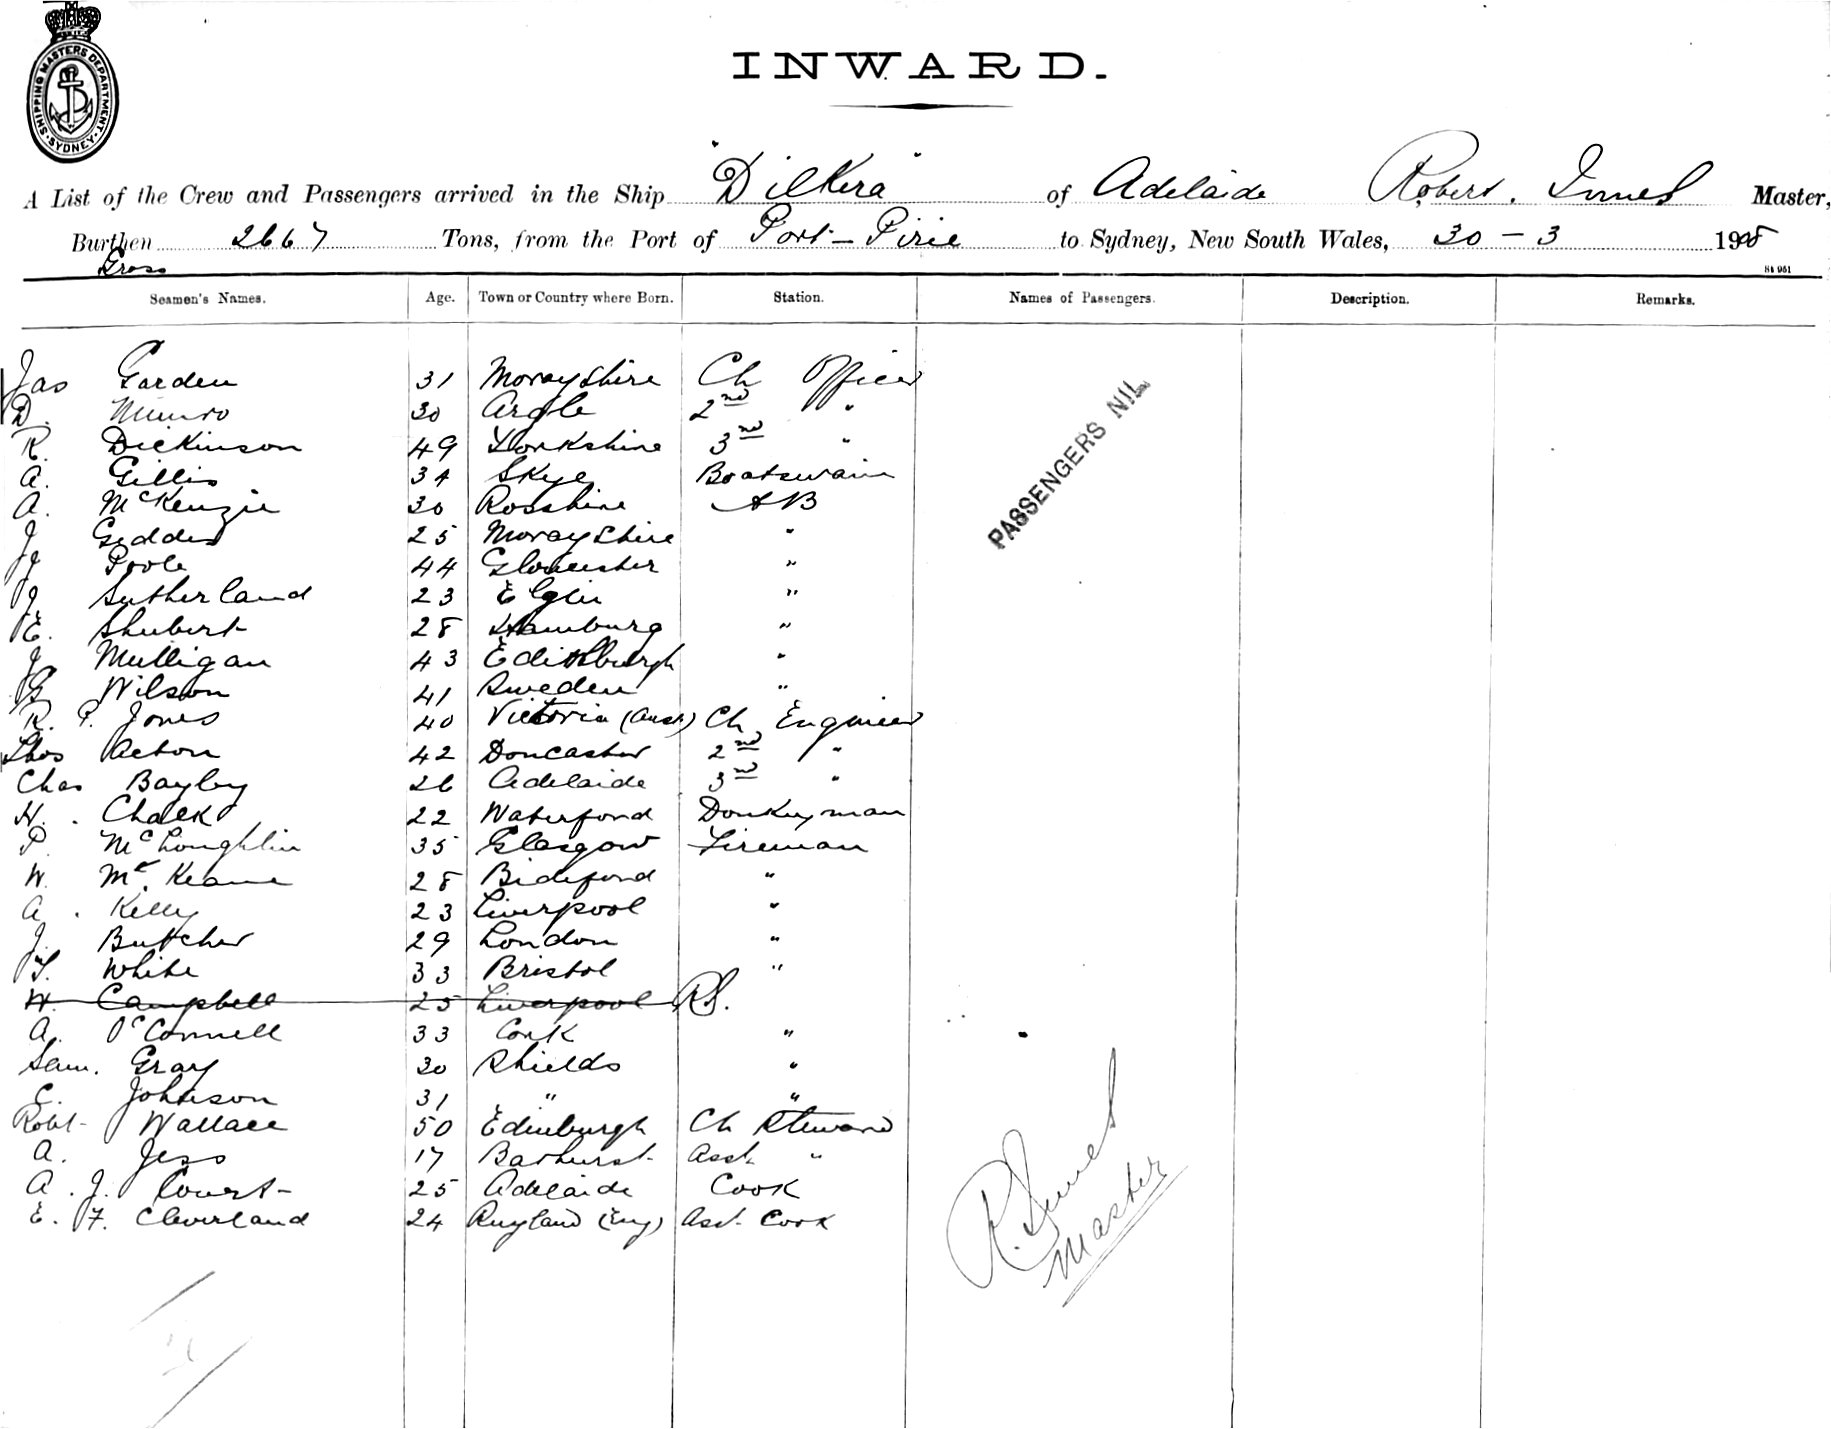 SHIPPING MASTERS DEPARTMENT
SYDNEY
INWARD.
A List of the Crew and Passengers arrived in the Ship "Dilkera" of Adelaide Robert. Innes Master,
Burthen 2667 Tons, from the Port of Port-Pirie to Sydney, New South Wales, 30-3 1908
Gross
St 951
Seamen's Names. Age. Town or Country where Born. Station. Names of Passengers. Description. Remarks.
Jas Garden 31 Morayshire Ch Officer
D. Munro 30 Argle 2nd "
R. Dickinson 49 Yorkshire 3rd "
A. Gillis 34 Skye Boatswain
A. McKenzie 30 Rosshire AB
J Geddes 25 Morayshire "
J Poole 44 Gloucester "
J Sutherland 23 Elgin "
E. Shubert 28 Hamburg "
J Mulligan 43 Edithburgh "
G Wilson 41 Sweden "
R. P. Jones 40 Victoria (Aust) Ch Engineer
Thos Acton 42 Doncaster 2nd "
Chas Bayley 26 Adelaide 3rd "
H. Chalk 22 Waterford Donkeyman
P. McLoughlin 35 Glasgow Fireman
W. Mc. Keane 28 Bideford "
A. Kelly 23 Liverpool "
J. Butcher 29 London "
T. White 33 Bristol "
W. Campbell 25 Liverpool
A. O'Connell 33 Cork "
Sam. Gray 30 Shields "
C. Johnson 31 " "
Robt Wallace 50 Edinburgh Ch Steward
A. Jess 17 Bathurst Asst "
A. J. Court 25 Adelaide Cook
E. F. Cleverland 24 (Eng) Asst. Cook
PASSENGERS NIL
R. Innes
Master